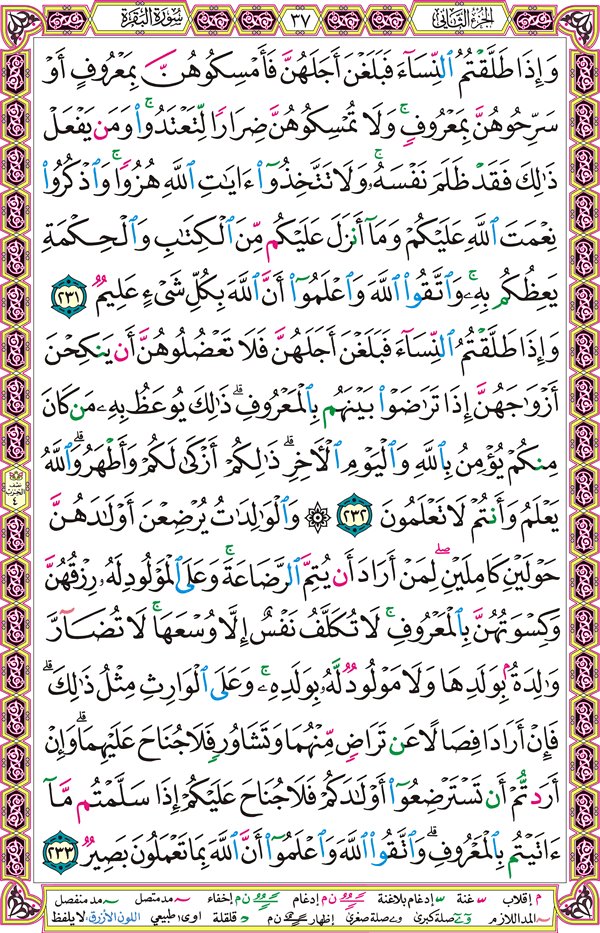 الجزء الثاني
٣٧
سورة البقرة
وَإِذَا طَلَّقْتُمُ ٱلنِّسَآءَ فَبَلَغْنَ أَجَلَهُنَّ فَأَمْسِكُوهُنَّ بِمَعْرُوفٍ أَوْ
سَرِّحُوهُنَّ بِمَعْرُوفٍ ۚ وَلَا تُمْسِكُوهُنَّ ضِرَارًا لِّتَعْتَدُوا۟ ۚ وَمَن يَفْعَلْ
ذَٰلِكَ فَقَدْ ظَلَمَ نَفْسَهُۥ ۚ وَلَا تَتَّخِذُوٓا۟ ءَايَٰتِ ٱللَّهِ هُزُوًا ۚ وَٱذْكُرُوا۟
نِعْمَتَ ٱللَّهِ عَلَيْكُمْ وَمَآ أَنزَلَ عَلَيْكُم مِّنَ ٱلْكِتَٰبِ وَٱلْحِكْمَةِ
يَعِظُكُم بِهِۦ ۚ وَٱتَّقُوا۟ ٱللَّهَ وَٱعْلَمُوٓا۟ أَنَّ ٱللَّهَ بِكُلِّ شَىْءٍ عَلِيمٌ ٢٣١
وَإِذَا طَلَّقْتُمُ ٱلنِّسَآءَ فَبَلَغْنَ أَجَلَهُنَّ فَلَا تَعْضُلُوهُنَّ أَن يَنكِحْنَ
أَزْوَٰجَهُنَّ إِذَا تَرَٰضَوْا۟ بَيْنَهُم بِٱلْمَعْرُوفِ ۗ ذَٰلِكَ يُوعَظُ بِهِۦ مَن كَانَ
مِنكُمْ يُؤْمِنُ بِٱللَّهِ وَٱلْيَوْمِ ٱلْءَاخِرِ ۗ ذَٰلِكُمْ أَزْكَىٰ لَكُمْ وَأَطْهَرُ ۗ وَٱللَّهُ
يَعْلَمُ وَأَنتُمْ لَا تَعْلَمُونَ ٢٣٢ ۞ وَٱلْوَٰلِدَٰتُ يُرْضِعْنَ أَوْلَٰدَهُنَّ
حَوْلَيْنِ كَامِلَيْنِ ۖ لِمَنْ أَرَادَ أَن يُتِمَّ ٱلرَّضَاعَةَ ۚ وَعَلَى ٱلْمَوْلُودِ لَهُۥ رِزْقُهُنَّ
وَكِسْوَتُهُنَّ بِٱلْمَعْرُوفِ ۚ لَا تُكَلَّفُ نَفْسٌ إِلَّا وُسْعَهَا ۚ لَا تُضَآرَّ
وَٰلِدَةٌۢ بِوَلَدِهَا وَلَا مَوْلُودٌ لَّهُۥ بِوَلَدِهِۦ ۚ وَعَلَى ٱلْوَارِثِ مِثْلُ ذَٰلِكَ ۗ
فَإِنْ أَرَادَا فِصَالًا عَن تَرَاضٍ مِّنْهُمَا وَتَشَاوُرٍ فَلَا جُنَاحَ عَلَيْهِمَا ۗ وَإِنْ
أَرَدتُّمْ أَن تَسْتَرْضِعُوٓا۟ أَوْلَٰدَكُمْ فَلَا جُنَاحَ عَلَيْكُمْ إِذَا سَلَّمْتُم مَّآ
ءَاتَيْتُم بِٱلْمَعْرُوفِ ۗ وَٱتَّقُوا۟ ٱللَّهَ وَٱعْلَمُوٓا۟ أَنَّ ٱللَّهَ بِمَا تَعْمَلُونَ بَصِيرٌ ٢٣٣
نصف
الحزب
٤
م إقلاب غنة إدغام بلاغنة ن م إدغام ن م إخفاء مد متصل مد منفصل
المد اللازم صلة كبرى صلة صغرى إظهار ن م قلقلة اوى: طبيعي اللون الأزرق: لا يلفظ